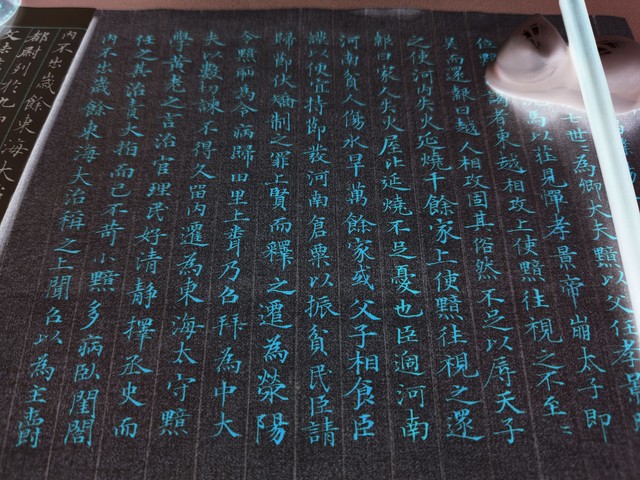 七世〻為卿大夫黯以父任孝景
馬以莊見憚孝景帝崩太子即
位黯者東越相攻上使黯往視之不至〻
吳而還報曰越人相攻固其俗然不足以辱天子
之使河內失火延燒千餘家上使黯往視之還
報曰家人失火屋比延燒不足憂也臣過河南
河南貧人傷水旱萬餘家或父子相食臣
謹以便宜持節發河南倉粟以振貧民臣請
歸節伏矯制之罪上賢而釋之遷為滎陽
令黯恥為令病歸田里上聞乃召拜為中大
夫以數切諫不得久留內遷為東海太守黯
學黃老之言治官理民好清靜擇丞史而
任之其治責大指而已不苛小黯多病臥閨閤
內不出歲餘東海大治稱之上聞召以為主爵
內不出歲餘東海大
都尉列於九
文法